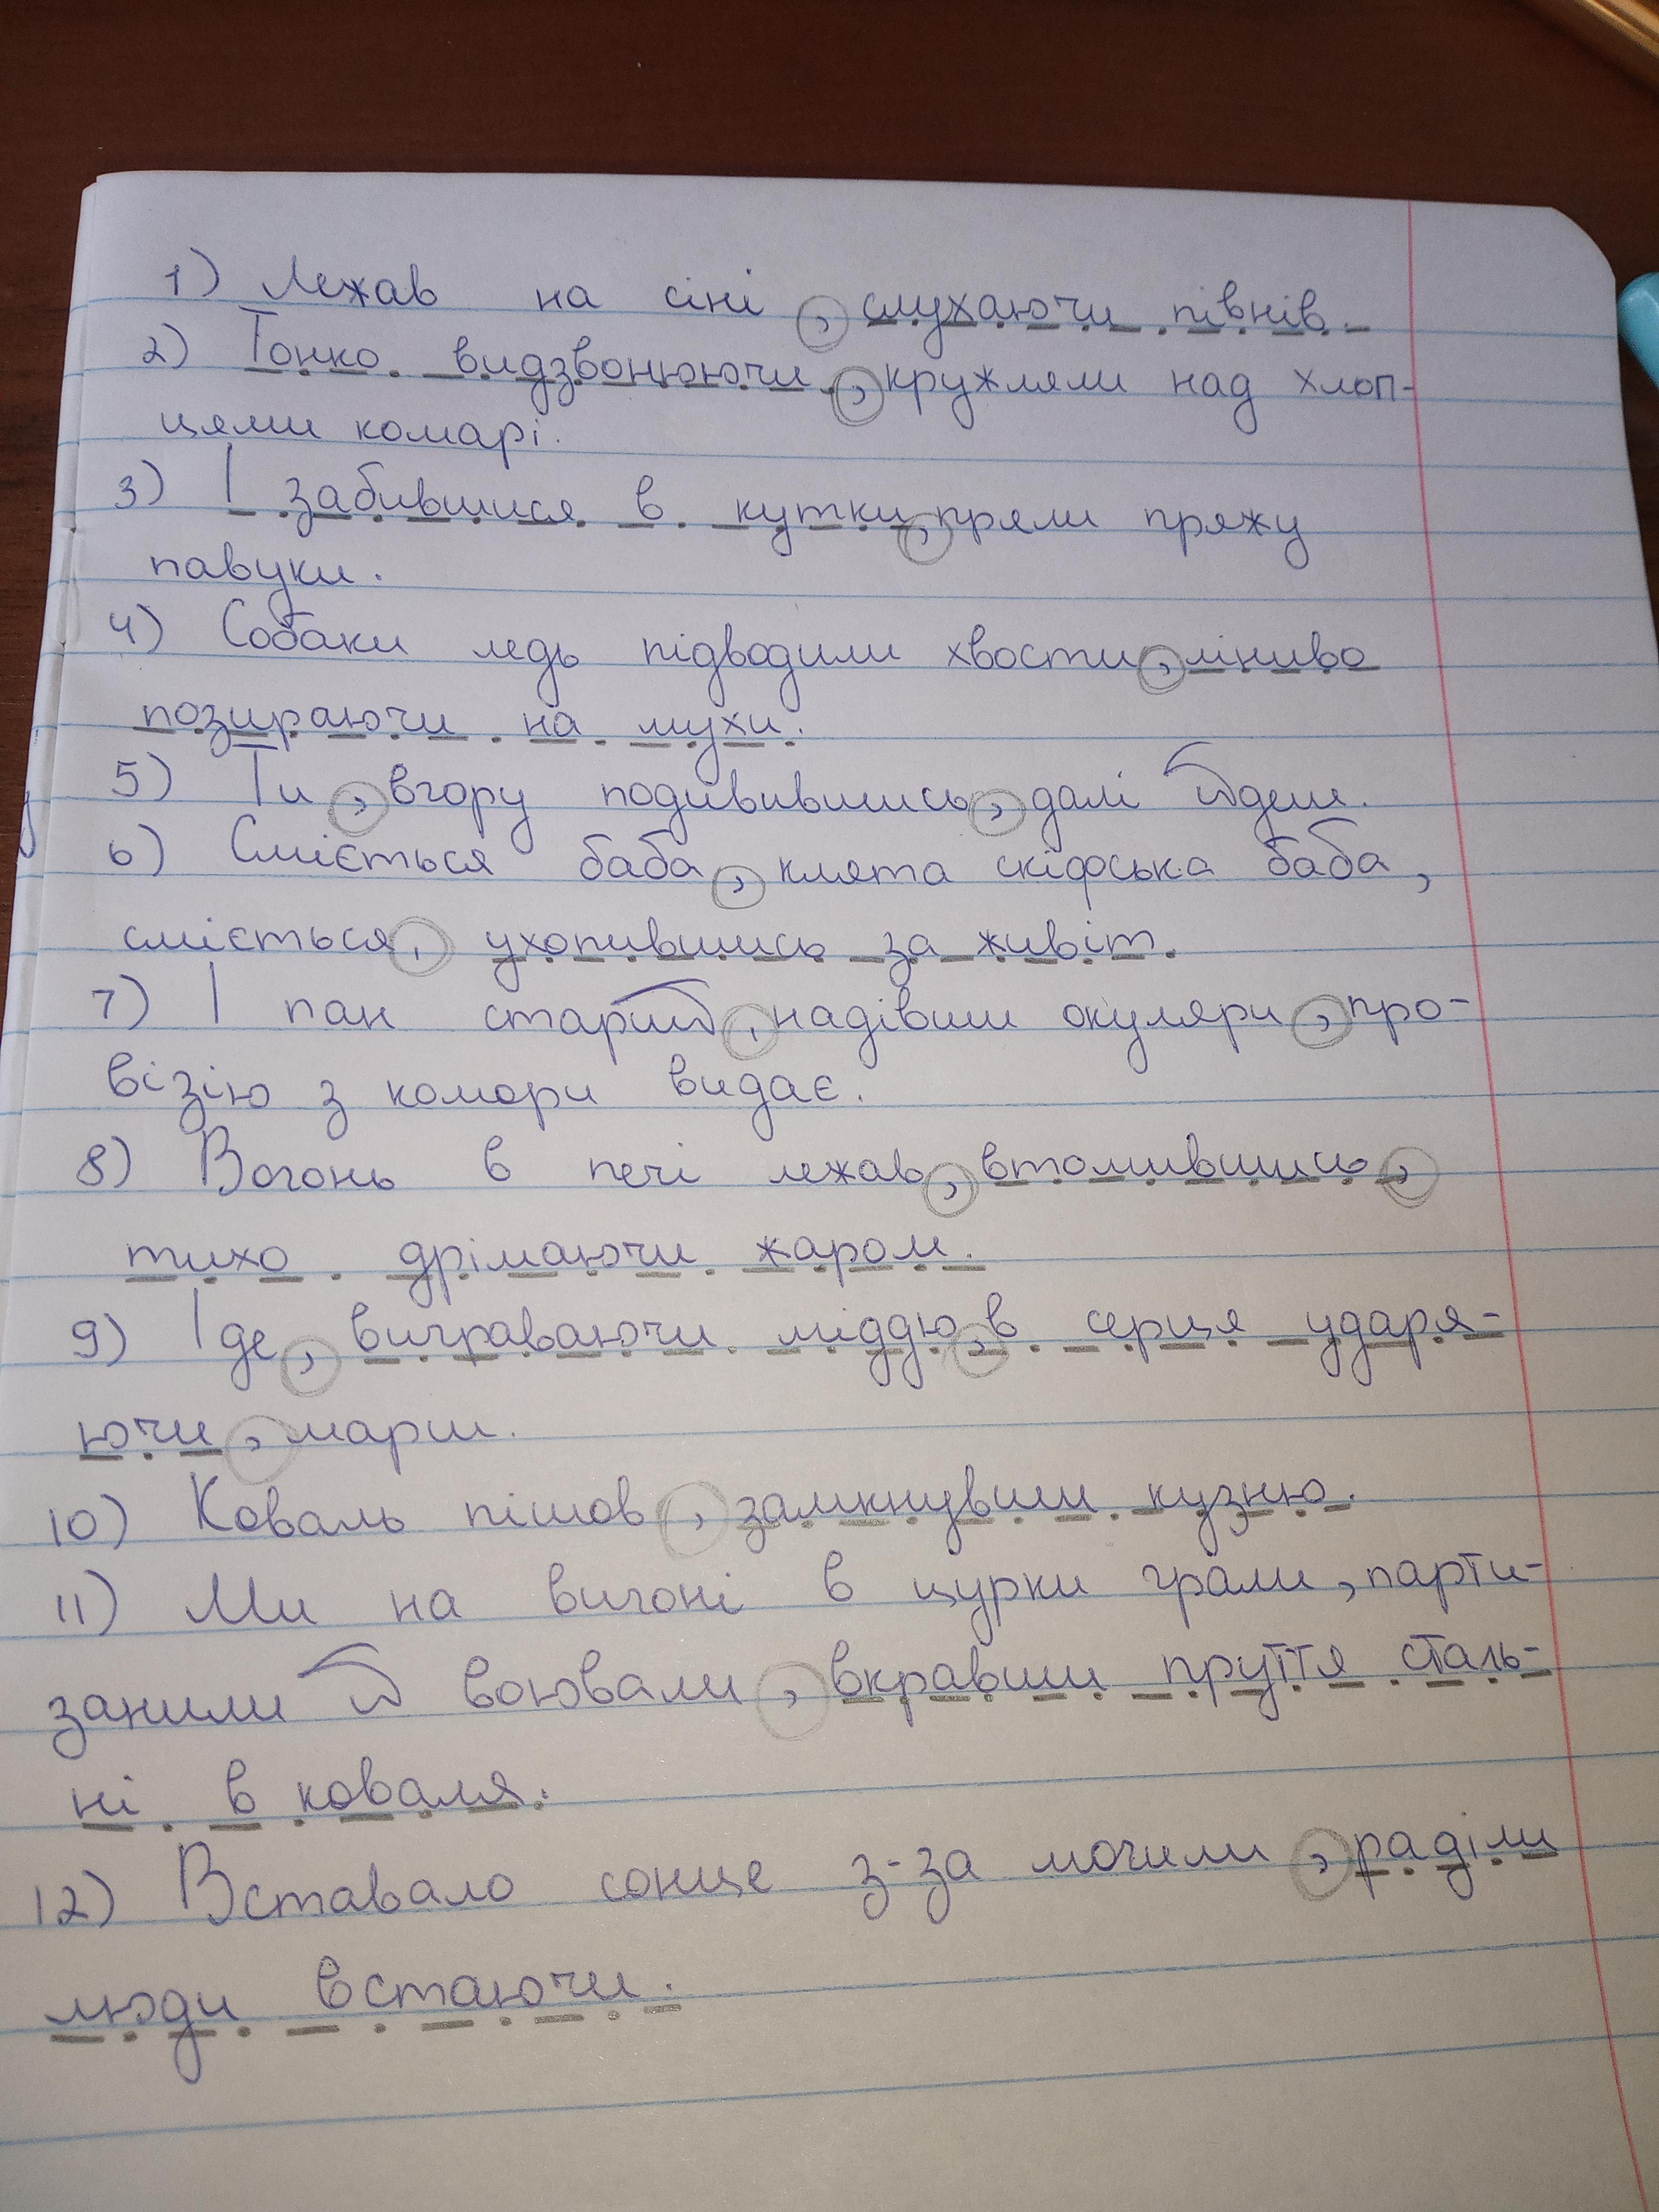 1) Лежав на сіні, слухаючи півнів.
2) Тонко видзвонюючи, кружляли над хлоп-
цями комарі.
3) І забившися в кутки, пряли пряжу
павуки.
4) Собаки ледь підводили хвости, ліниво
позираючи на мухи.
5) Ти, вгору подивившись, далі йдеш.
6) Сміється баба, клята скіфська баба,
сміється, ухопившись за живіт.
7) І пан старий, надівши окуляри, про-
візію з комори видає.
8) Вогонь в печі лежав, втомившись,
тихо дрімаючи жаром.
9) Іде, виграваючи міддю, в серця ударя-
ючи, марш.
10) Коваль пішов, замкнувши кузню.
11) Ми на вигоні в цурки грали, парти-
занили й воювали, вкравши пруття сталь-
ні в коваля.
12) Вставало сонце з-за могили, раділи
люди встаючи.